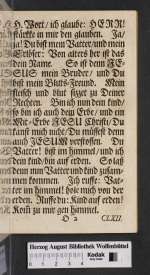 H. H. Wort/ ich glaube: HERR!
stärckte in mir den glauben. Ja/
Ja! Du bist mein Vatter/und mein
Erlöser: Von alters her ist das
dein Name. So ist denn JE-
SUS mein Bruder/ und Du
bist mein Bluts-Freund. Mein
fleisch und blut sitzet zu Deiner
Rechten. Bin ich nun dein kind/
so bin ich auch dein Erbe/ und ein
Mit-Erbe JESU Christi: Du
kanst mich nicht/ Du müssest denn
auch JESUM verstossen. Du
Vatter! bist im himmel/ und ich
dein kind/bin auf erden. So laß
denn mein Vatter und kind zusam-
men kommen. Ich ruffe: Vat-
ter im himmel! hole mich von der
erden. Ruffe du: Kind auf erden!
Kom zu mir gen himmel.
O 2 CLXII.
Herzog August Bibliothek Wolfenbüttel
Kodak